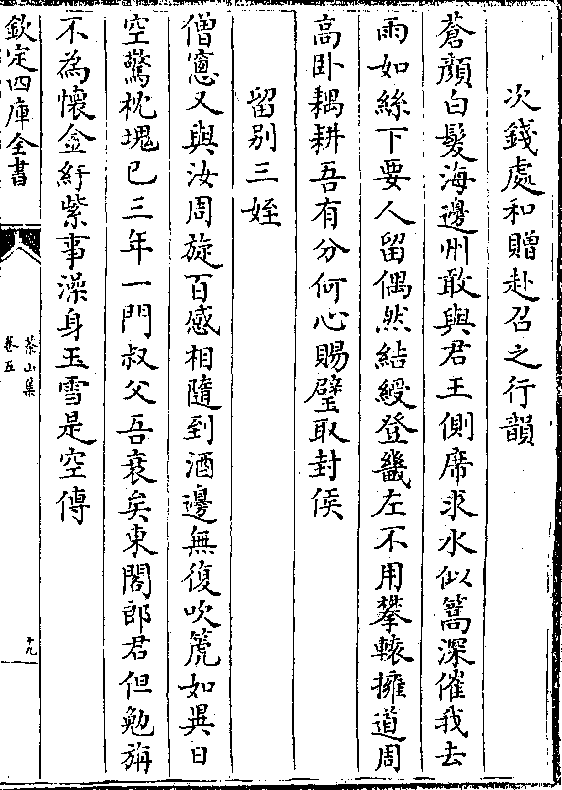 次錢處和贈赴召之行韻
蒼顏白髮海邊州敢與君王側席求水似篙深催我去
雨如絲下要人留偶然結綬登畿左不用攀轅擁道周
高卧耦耕吾有分何心賜璧取封侯
留别三姪
僧窻又與汝周旋百感相隨到酒邊無復吹箎如異日
空驚枕塊已三年一門叔父吾衰矣東閣郎君但勉旃
不為懷金紆紫事澡身玉雪是空傳
欽定四庫全書
茶山集
卷五
十九